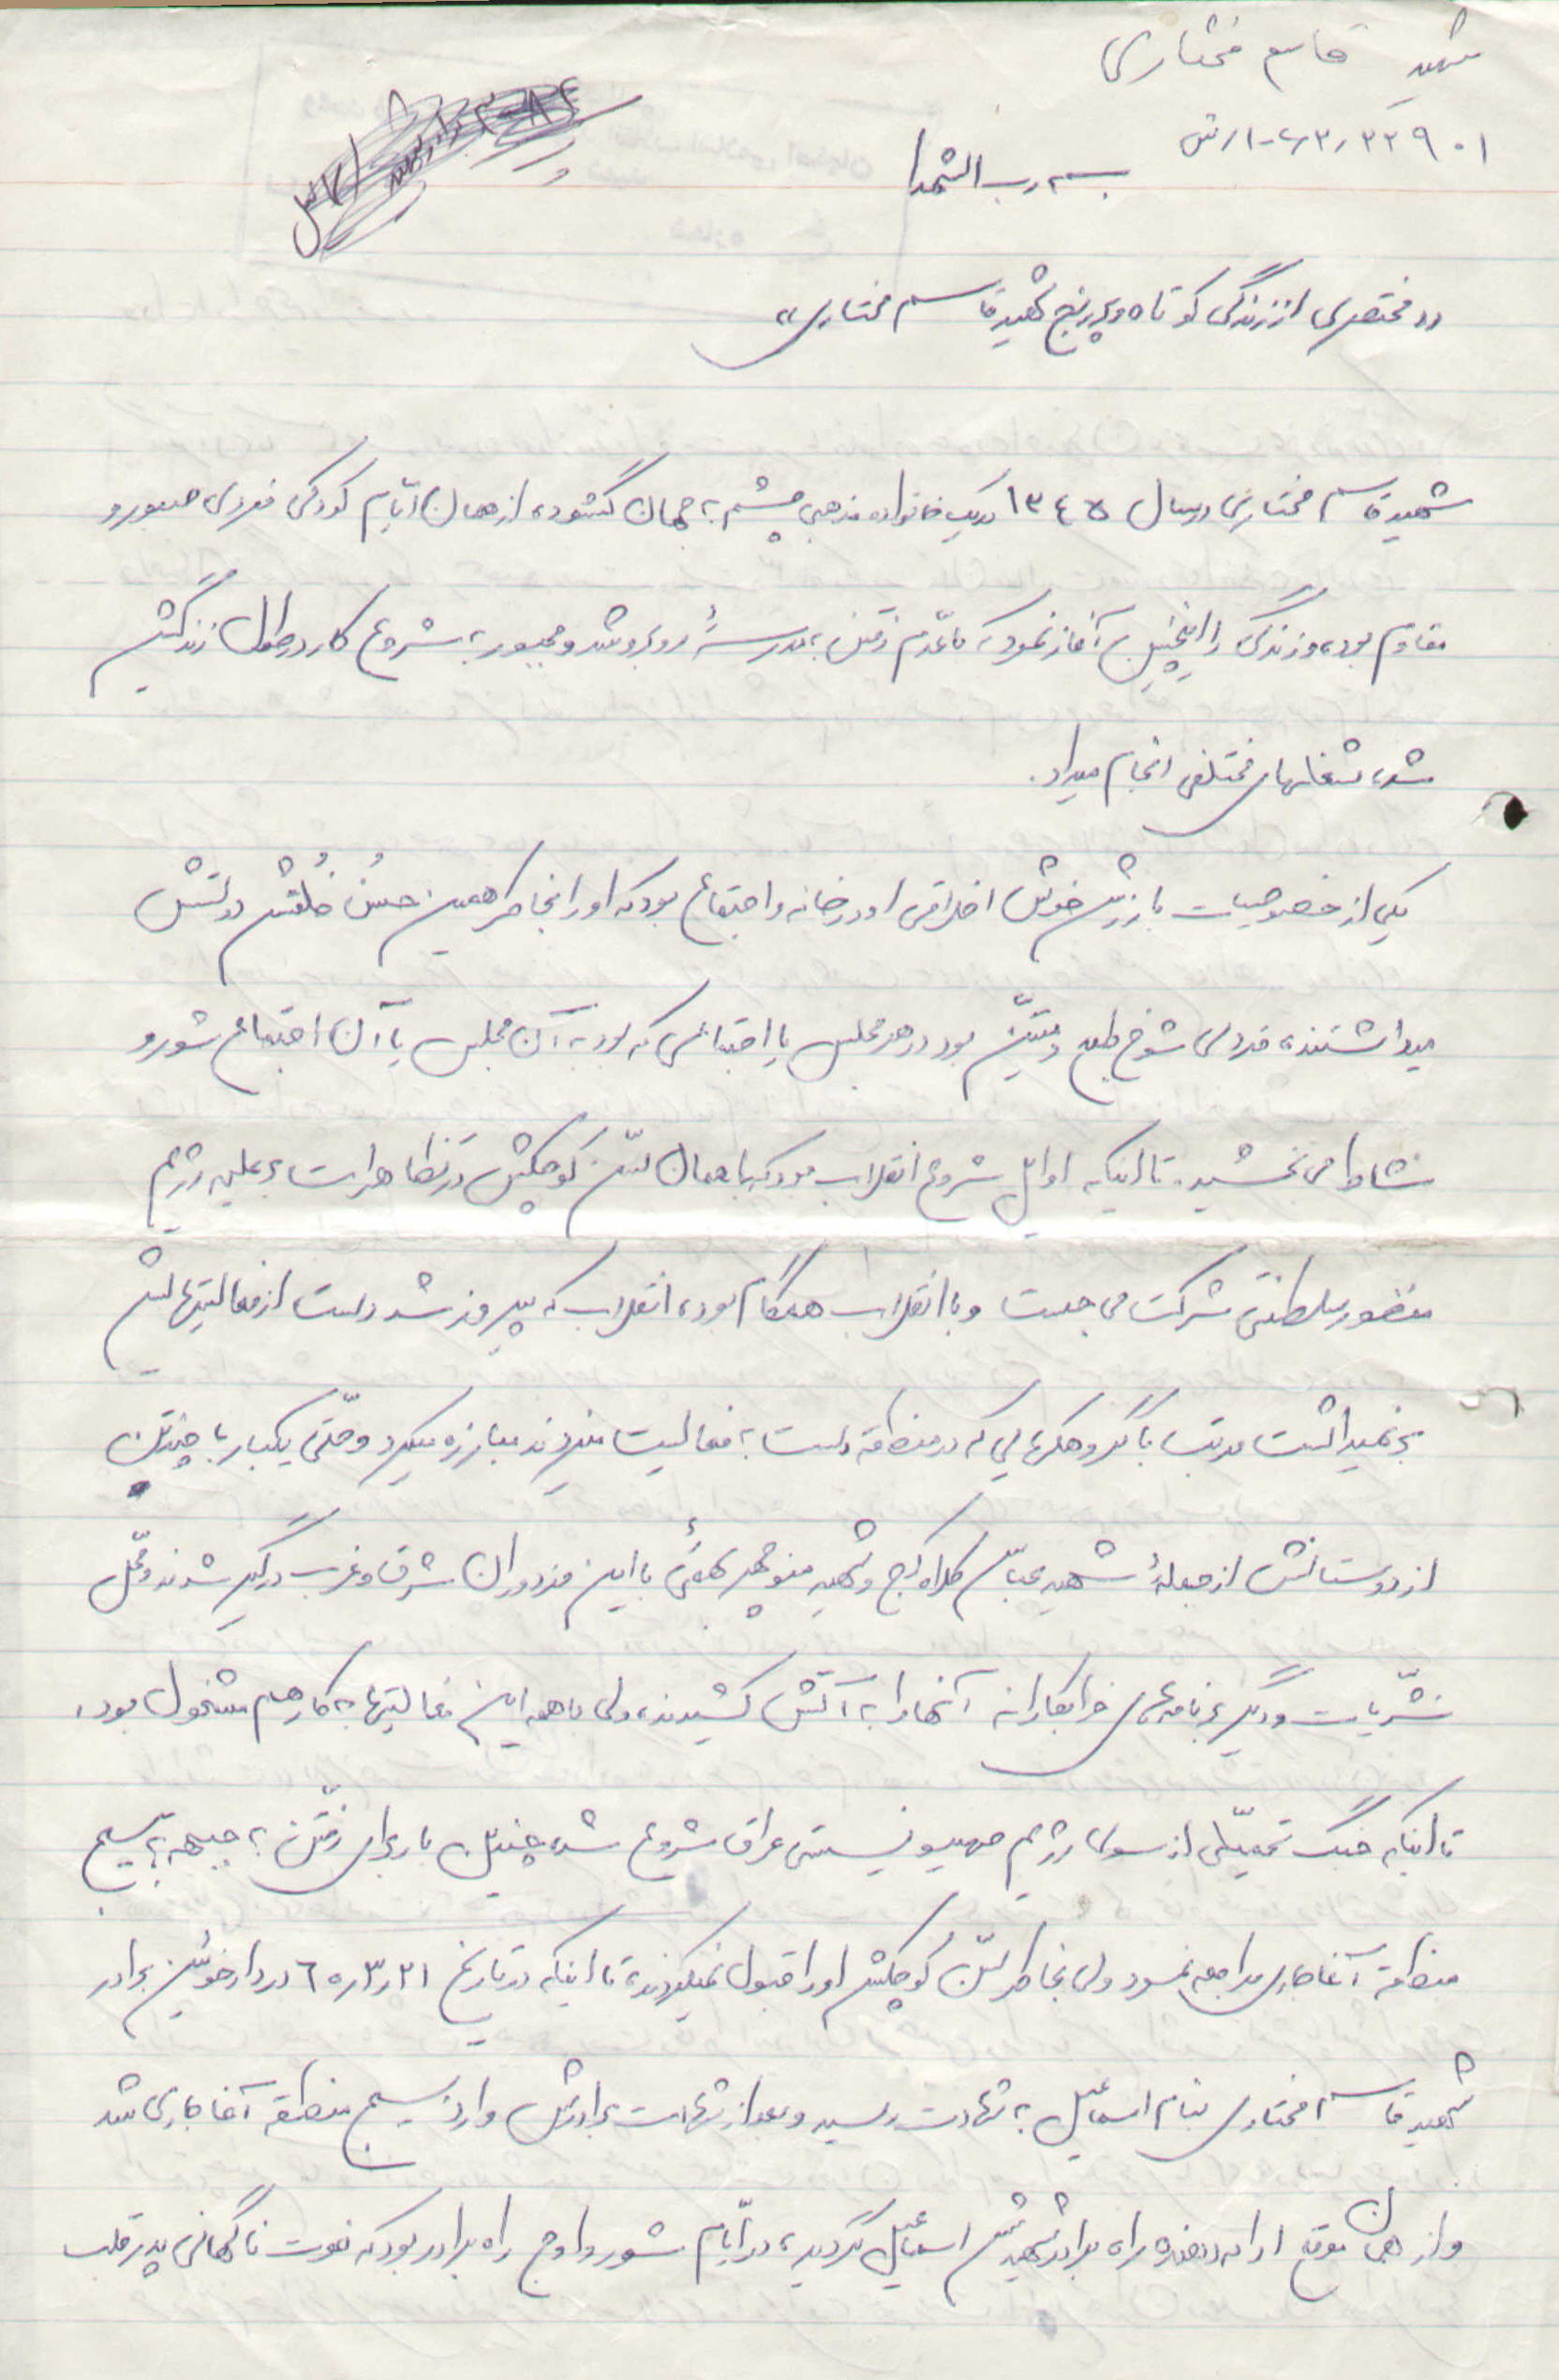 شهید قاسم مختاری
بسم رب الشهدا
«مختصری از زندگی کوتاه و پررنج شهید قاسم مختاری»
شهید قاسم مختاری در سال ۱۳۴۵ در یک خانواده مذهبی چشم به جهان گشود، از همان ایّام کودکی فردی صبور و
مقاوم بود، و زندگی را اینچنین آغاز نمود که با عدم رفتن به مدرسهٔ روبرو شد و مجبور به شروع کار در طول زندگیش
شد، شغلهای مختلفی انجام میداد.
یکی از خصوصیات بارزش خوش اخلاقی او در خانه و اجتماع بود که او را بخاطر همین حسُن خُلقش دوستش
میداشتند، فردی شوخ طبع و متیّن بود در هر مجلس یا اجتماعی که بود به آن مجلس یا آن اجتماع شور و
نشاط می بخشید. تا اینکه اوایل شروع انقلاب بود که با همان سنّ کوچکش در تظاهرات بر علیه رژیم
منفور سلطنتی شرکت می جست و با انقلاب همگام بود، انقلاب که پیروز شد دست از فعالیتهایش
بر نمیداشت مرتب با گروهکهایی که در منطقه دست به فعالیت میزدند مبارزه میکرد و حتّی یکبار با چندتن
از دوستانش از جملهٔ شهید عباس کلاه کج و شهید منوچهر با این مزدوران شرق و غرب درگیر شدند و محّل
نشّریات و دیگر برنامه های خرابکارانه آنها را به آتش کشیدند، ولی با همه این فعالیتها به کار هم مشغول بود،
تا اینکه جنگ تحمیّلی از سوی رژیم صهیونیستی عراق شروع شد، چندین بار برای رفتّن به جبهه به بسیج
منطقه آغاجاری مراجعه نمود ولی بخاطر سنّ کوچکش او را قبول نمیکردند، تا اینکه در تاریخ ۶۰/۳/۲۱ در دارخوئین برادر
شهید قاسم مختاری بنام اسماعیل به شهادت رسید و بعد از شهادت برادرش وارد بسیج منطقه آغاجاری شد
و از همان موقع ادامه دهنده راه برادر شهیدش اسماعیل گردید، در ایّام شور و اوج راه برادر بود که فوت ناگهانی پدر قلب